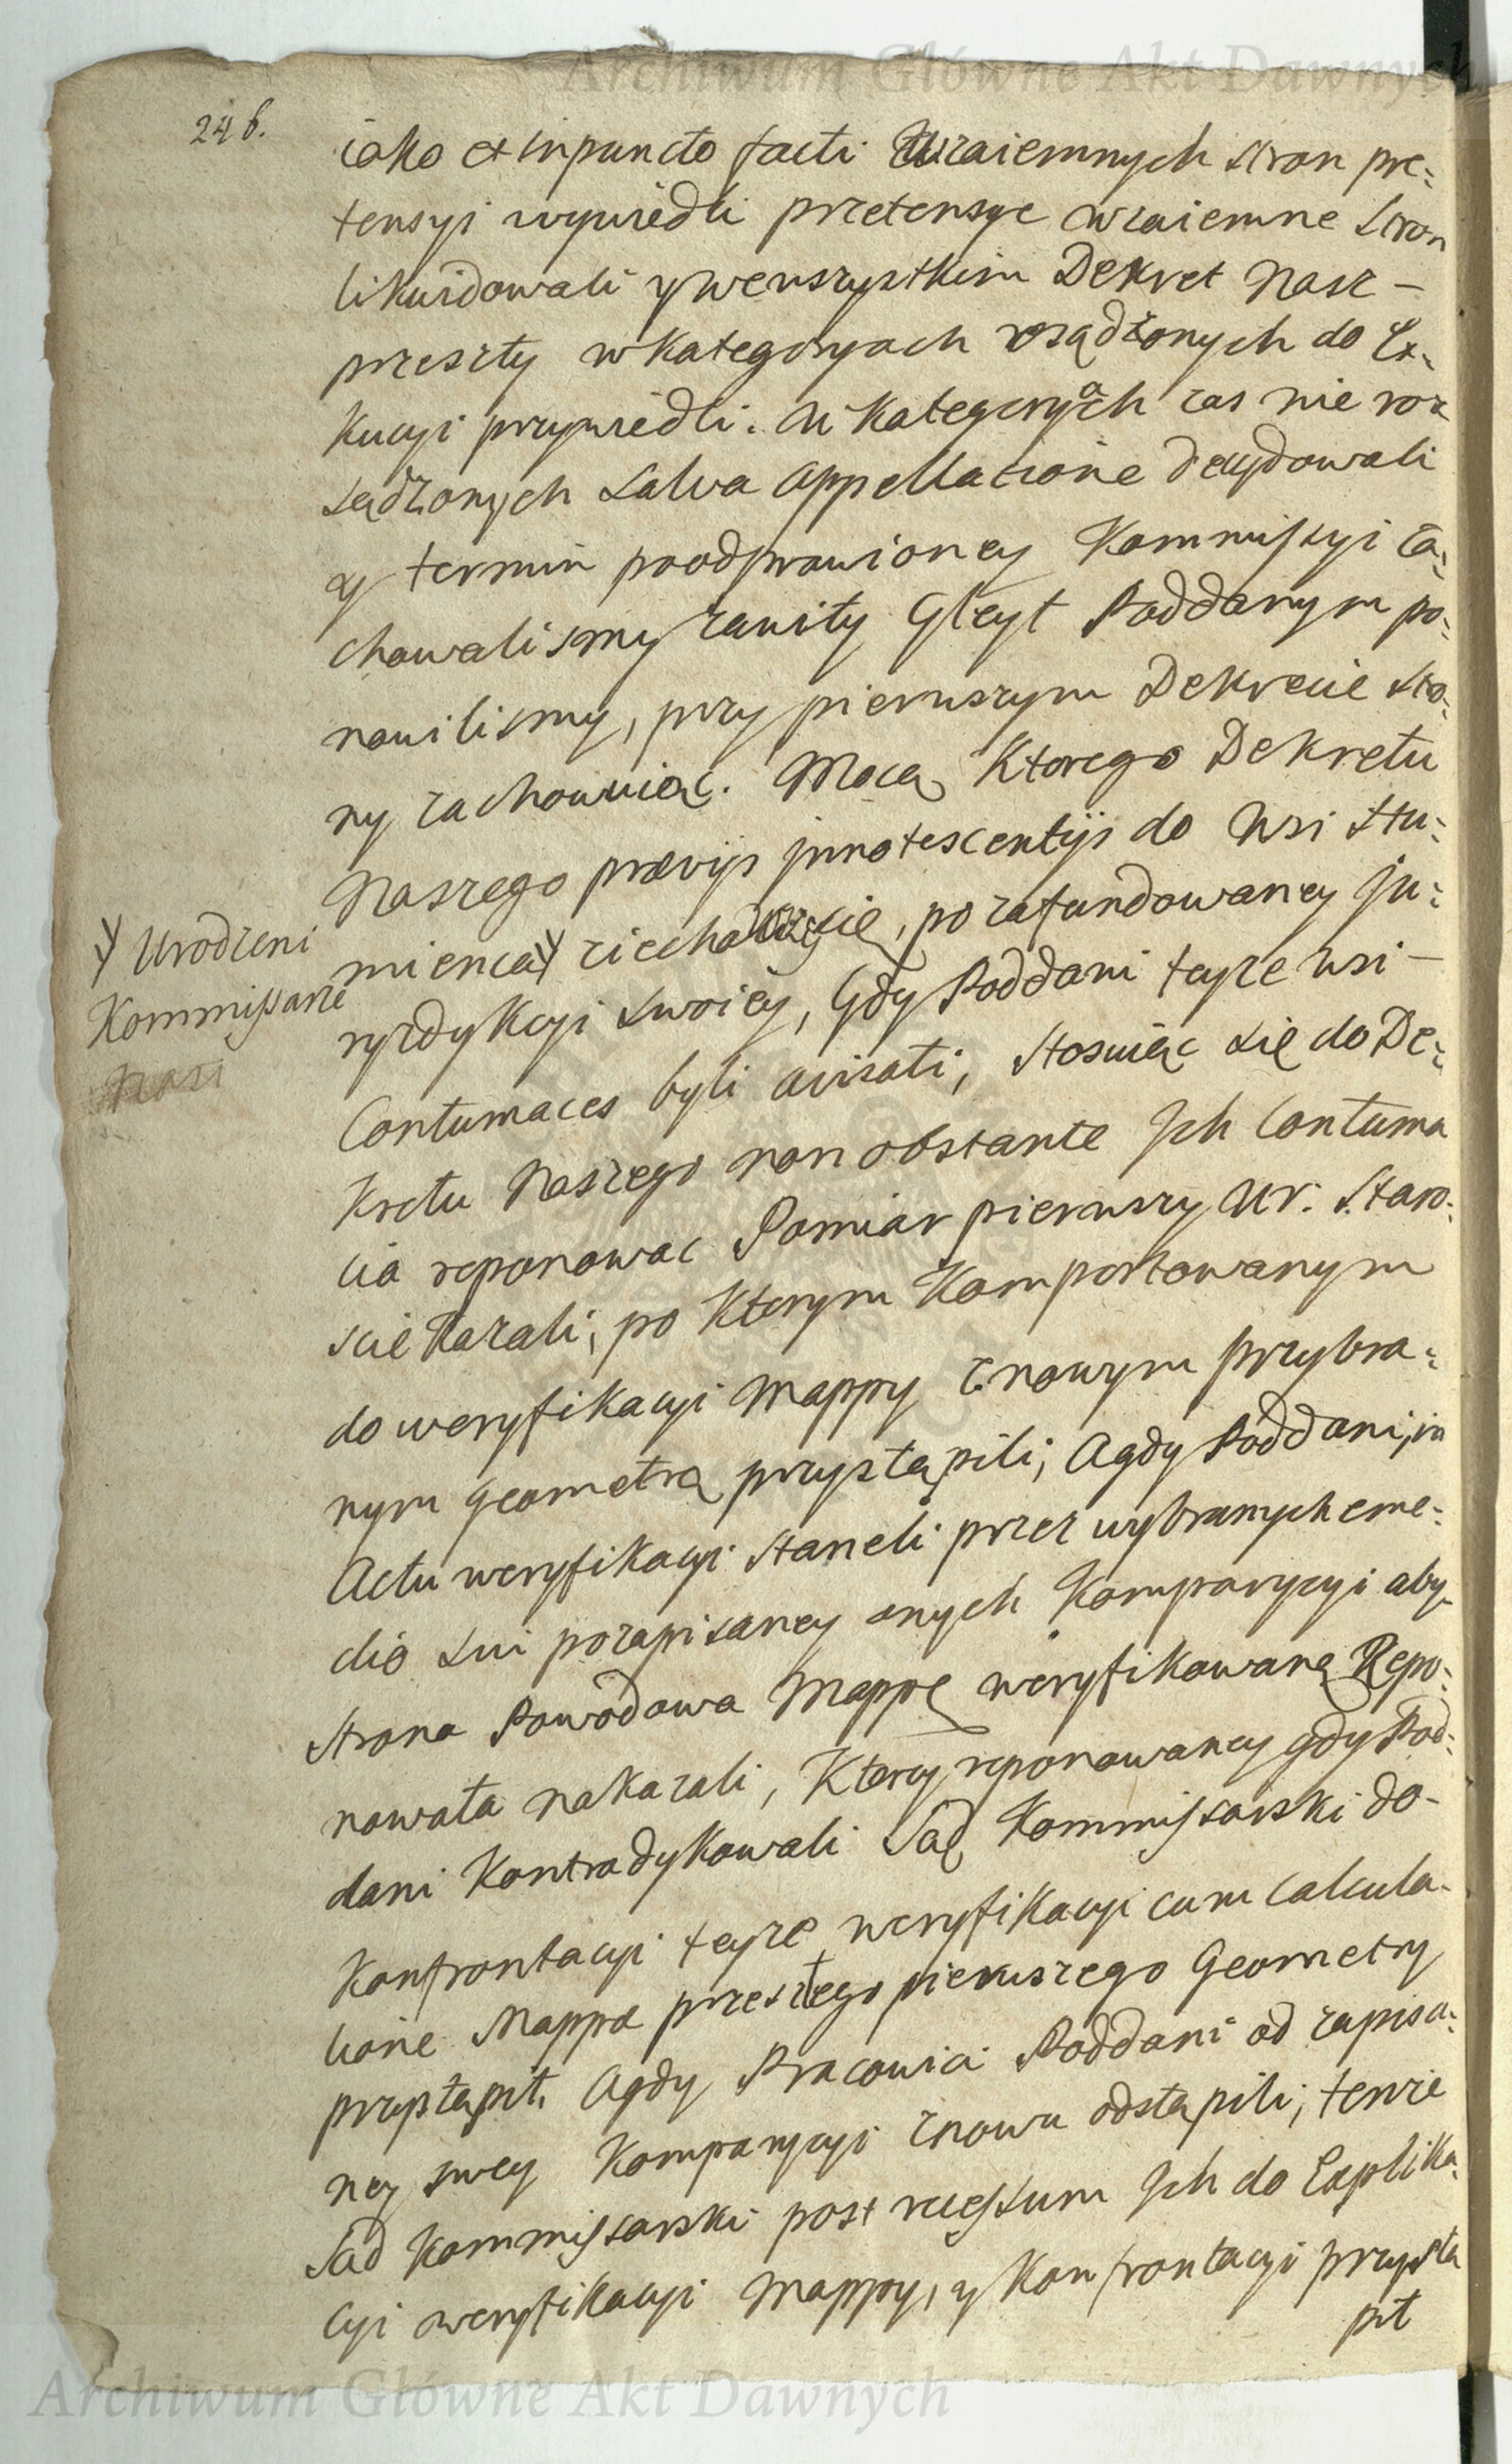 Archiwum Główne Akt Dawnych
246.
iako et in puncto facti Wzaiemnych stron pre-
tensyi wywiedli pretensye wzaiemne stron
likwidowali y we wszystkim Dekret Nasz -
przeszły w kategoryach osądzonych do Ex-
kucyi przywiedli. W kategoryach zas nie roz
sądzonych salva appellatione decydowali
y termin po odprawioney Kommissyi za-
chowalismy zawity Gleyt Poddanym po-
nowilismy, przy pierwszym Dekrecie stro-
ny zachowuiąc. Mocą Ktorego Dekretu
Naszego prævijs innotescentijs do Wsi Stu-
mienca ziechawszy się, po zafundowaney Ju-
Urodzeni
Kommissarze
Nasi
ryzdykcyi swoiey, Gdy Poddani teyze Wsi -
Contumaces byli avisati, stosuiąc się do De-
kretu Naszego non obstante Jch Contuma
cia reponowac Pomiar pierwszy Ur. Staro-
scie Kazali, po Ktorym Komportowanym
do weryfikacyi Mappy z nowym przybra-
nym Geometrą przystąpili, a gdy Poddani, in
Actu weryfikacyi staneli przez wybranych e me-
dio sui po zapisaney onych Komparycyi aby
Strona Powodowa Mappę weryfikowaną Repo-
nowała nakazali, Ktorey reponowaney gdy Pod-
dani Kontradykowali Sąd Kommissarski do-
Konfrontacyi teyze weryfikacyi cum Calcula-
tione Mappæ przeszłego pierwszego Geometry
przystąpił. A gdy Pracowici Poddani od zapisa-
ney swey Komparycyi znowu odstąpili, tenze
Sąd Kommissarski post recessum Jch do Explika-
cyi weryfikacyi Mappy, y Konfrontacyi przystą
pił
Archiwum Główne Akt Dawnych